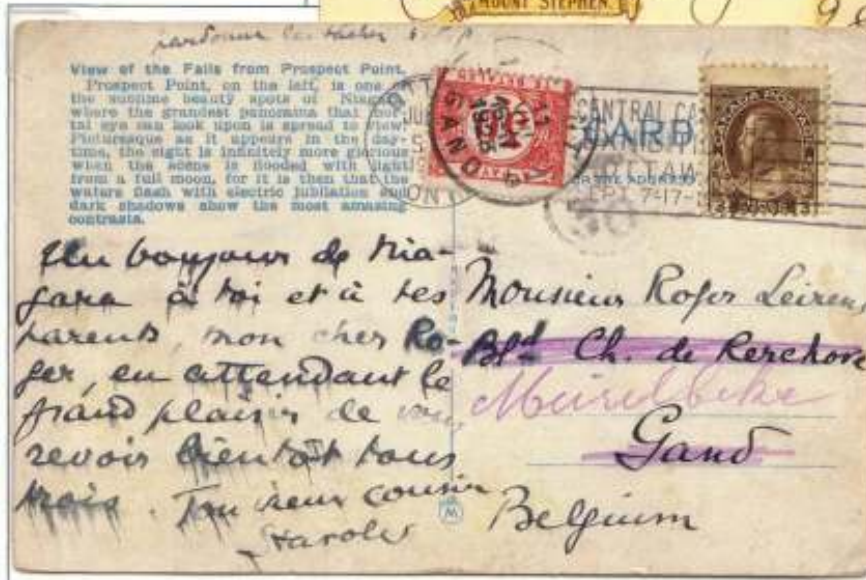 MOUNT STEPHEN
View of the Falls from Prospect Point.
Prospect Point, on the left, is one of
the sublime beauty spots of Niagara
where the grandest panorama that mor-
tal eye can look upon is spread to view!
Picturesque as it appears in the day-
time, the sight is infinitely more glorious
when the scene is flooded with light
from a full moon, for it is then that the
waters flash with electric jubilation and
dark shadows show the most amazing
contrasts.
CARD
CENTRAL CA
OTTAWA
SEPT 7-17
CANADA POSTAGE
GAND
Un bonjour de Nia-
gara à toi et à tes
parents, mon cher Ro-
ger, en attendant le
grand plaisir de vous
revoir bientôt tous
trois. Ton vieux cousin
Monsieur Roger Leiren
Bld Ch. de Kerchove
Meirelbeke
Gand
Belgium